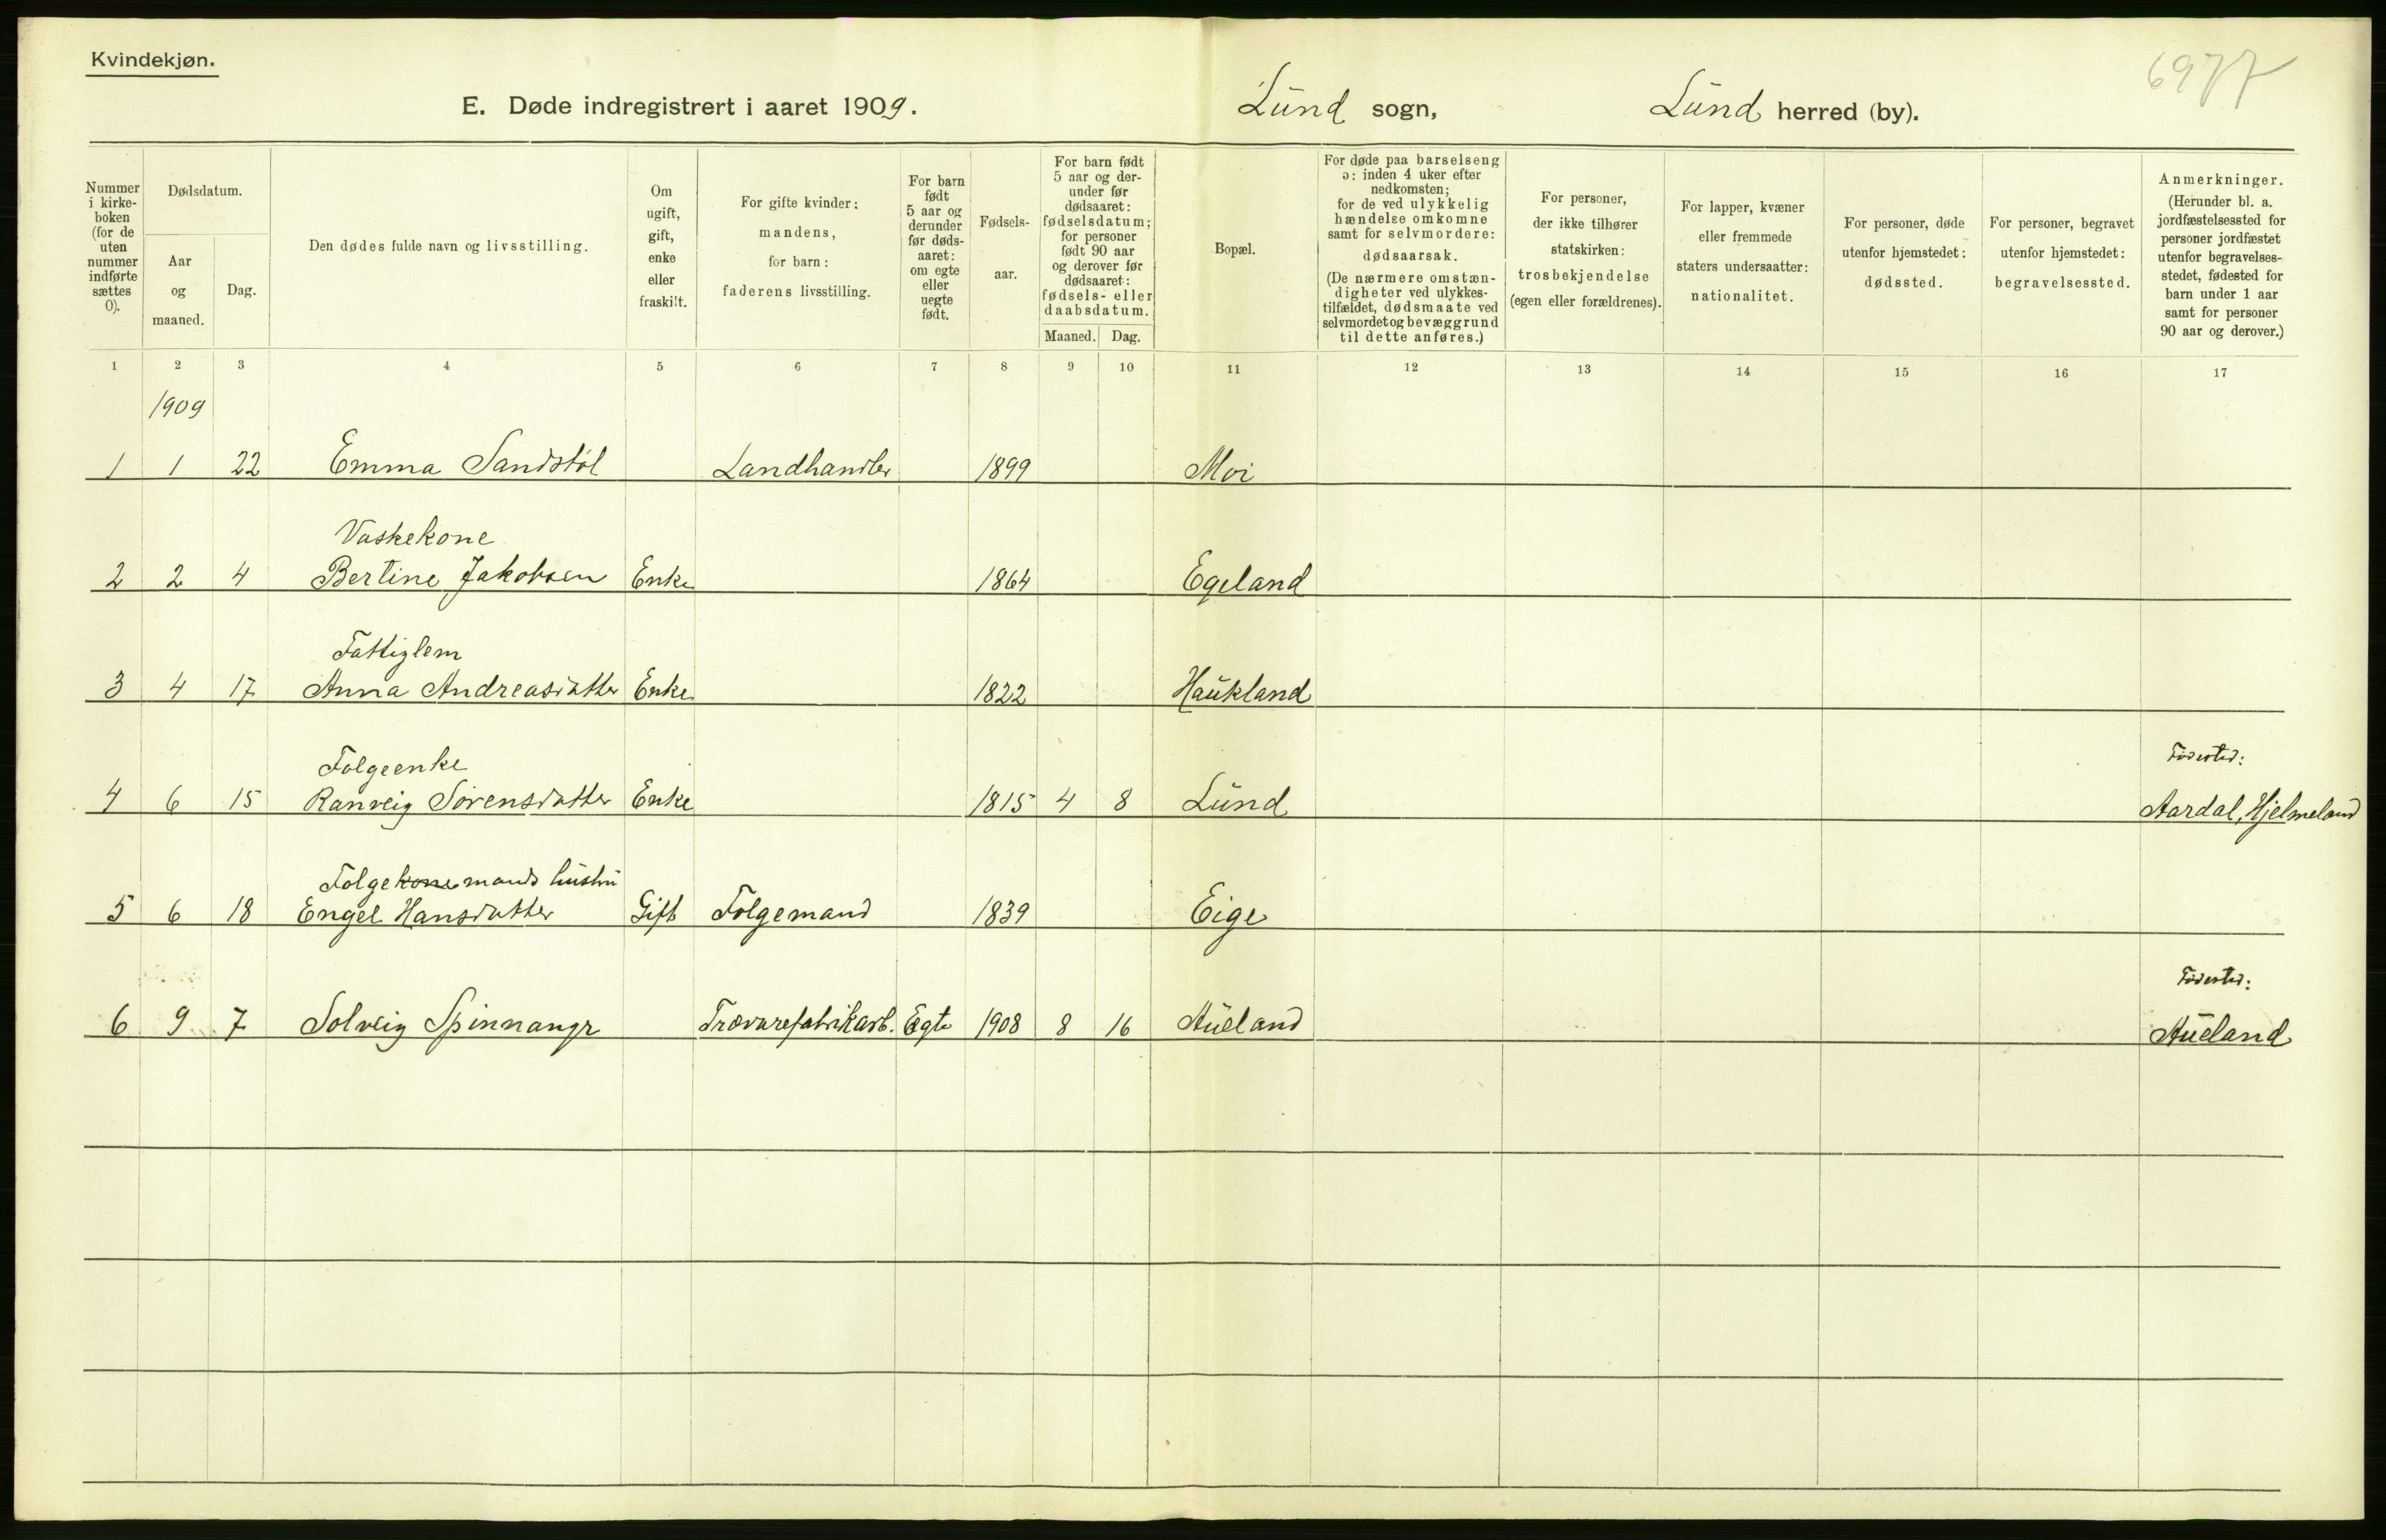 Kvindekjøn.
6977
E. Døde indregistrert i aaret 1909. Lund sogn, Lund herred (by).
Nummer i kirke- boken (for de uten nummer indførte sættes 0).
Dødsdatum.
Aar og maaned.
Dag.
Den dødes fulde navn og livsstilling.
Om ugift, gift, enke eller fraskilt.
For gifte kvinder: mandens, for barn: faderens livsstilling.
For barn født 5 aar og derunder før døds- aaret: om egte eller uegte født.
Fødsels- aar.
For barn født 5 aar og der- under før dødsaaret: fødselsdatum; for personer født 90 aar og derover før dødsaaret: fødsels- eller daabsdatum.
Maaned. Dag.
Bopæl.
For døde paa barselseng ɔ: inden 4 uker efter nedkomsten; for de ved ulykkelig hændelse omkomne samt for selvmordere: dødsaarsak. (De nærmere omstæn- digheter ved ulykkes- tilfældet, dødsmaate ved selvmordet og bevæggrund til dette anføres.)
For personer, der ikke tilhører statskirken: trosbekjendelse (egen eller forældrenes).
For lapper, kvæner eller fremmede staters undersaatter: nationalitet.
For personer, døde utenfor hjemstedet: dødssted.
For personer, begravet utenfor hjemstedet: begravelsessted.
Anmerkninger. (Herunder bl. a. jordfæstelsessted for personer jordfæstet utenfor begravelses- stedet, fødested for barn under 1 aar samt for personer 90 aar og derover.)
1 2 3 4 5 6 7 8 9 10 11 12 13 14 15 16 17
1909
1 1 22 Emma Sandstøl Landhandler 1899 Moi
Vaskekone
2 2 4 Bertine Jakobsen Enke 1864 Egeland
Fattiglem
3 4 17 Anna Andreasdatter Enke 1822 Haukland
Folgeenke Fødested:
4 6 15 Ranveig Sørensdatter Enke 1815 4 8 Lund Aardal, Hjelmeland
Folgekone mands hustru
5 6 18 Engel Hansdatter Gift Folgemand 1839 Eige
Fødested:
6 9 7 Solveig Spinnangr Trævarefabrikarb. Egte 1908 8 16 Aueland Aueland